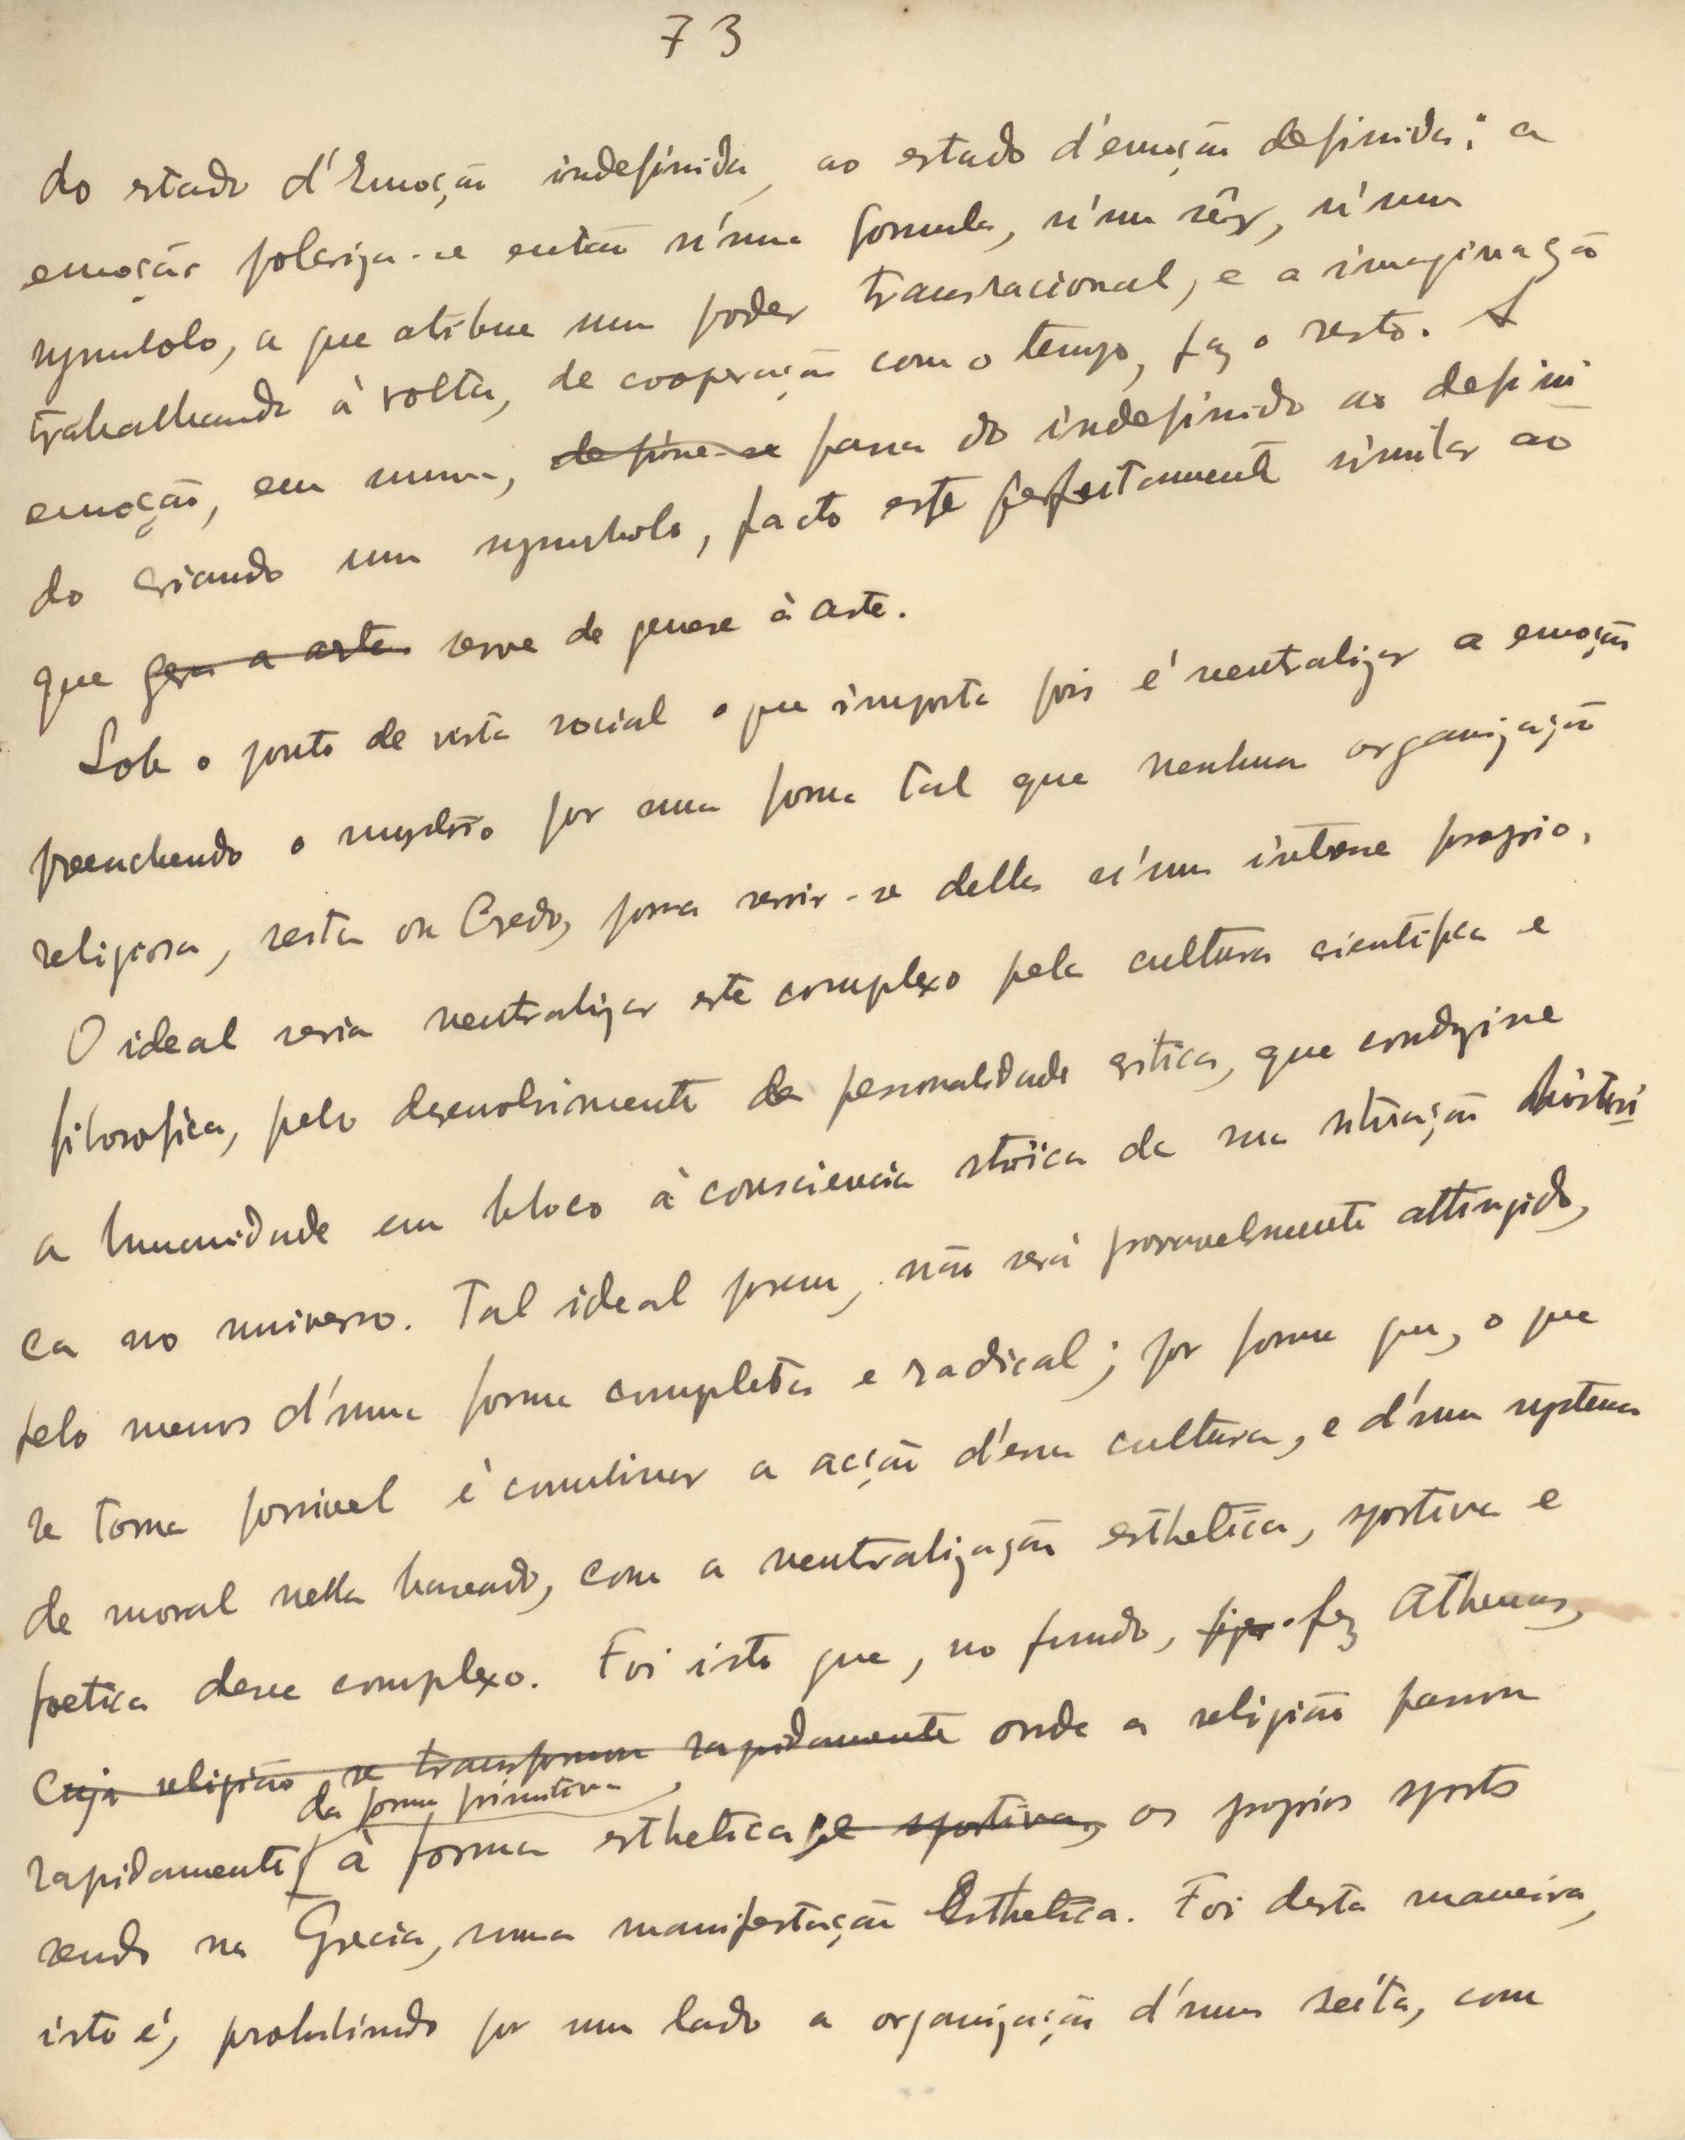 73
do estado d'Emoção indefinida, ao estado d'emoção definida; a
emoção polariza-se então n'uma formula, n'um sêr, n'um
symbolo, a que atribue um poder transracional, e a imaginação
trabalhando à volta, de cooperação com o tempo, faz o resto. A
emoção, em suma, define-se passa do indefinido ao defini
do criando um symbolo, facto este perfeitamente similar ao
que gera a arte serve de genese à arte.
Sob o ponto de vista social o que importa pois é neutralizar a emoção
preenchendo o mysterio por uma forma tal que nenhuma organização
religiosa, seita ou Credo, possa servir-se della n'um interesse proprio.
O ideal seria neutralizar este complexo pela cultura cientifica e
filosofica, pelo desenvolvimento da personalidade critica, que conduzisse
a humanidade em bloco à consciencia stoïca da sua situação histori
ca no universo. Tal ideal porem, não será provavelmente attingido,
pelo menos d'uma forma completa e radical; por forma que, o que
se torna possivel é combinar a acção d'essa cultura, e d'um systema
de moral nella baseado, com a neutralização esthetica, sportiva e
poetica desse complexo. Foi isto que, no fundo, fez Athenas,
cuja religião se transformou rapidamente onde a religião passou
da forma primitiva,
rapidamente à forma esthetica e sportiva, os proprios sports
sendo na Grecia, uma manifestação Esthetica. Foi desta maneira,
isto é, prohibindo por um lado a organização d'uma seita, com